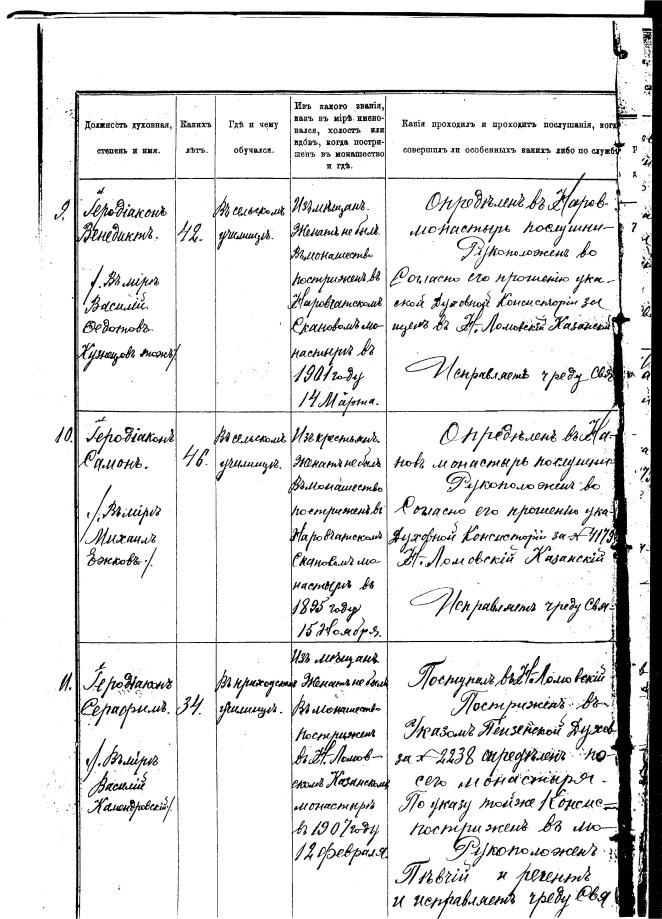 Должность духовная,
степень и имя.
Какихъ
лѣтъ.
Гдѣ и чему
обучался.
Изъ какого званія,
какъ въ мірѣ имено-
вался, холостъ или
вдовъ, когда постри-
женъ въ монашество
и гдѣ.
Какія проходилъ и проходитъ послушанія, когд
совершилъ ли особенныхъ какихъ либо по служб
9.
Іеродіаконъ
Венедиктъ.
/. Въ мірѣ
Василій
Ѳедотовъ
Кузнецовъ
42.
Въ сельскомъ
училищѣ.
Изъ мѣщанъ.
Женатъ не былъ
Въ монашество
постриженъ въ
Наровчатскомъ
Скановомъ мо-
настырѣ въ
1901 году
14 Марта.
Опредѣленъ въ Наров-
монастырь послушни-
Рукоположенъ во
Согласно его прошенію ука-
ской Духовной Консисторіи за
щенъ въ Н. Ломовскій Казанскій
Исправляетъ чреду Свя-
10.
Іеродіаконъ
Самонъ.
/. Въ мірѣ
Михаилъ
Ежковъ./
46.
Въ сельскомъ
училищѣ.
Изъ крестьянъ.
Женатъ не былъ
Въ монашество
постриженъ въ
Наровчатскомъ
Скановомъ мо-
настырѣ въ
1895 году
15 Ноября.
Опредѣленъ въ На-
новъ монастырь послушни-
Рукоположенъ во
Согласно его прошенію ука-
Духовной Консисторіи за № 4173
Н.-Ломовскій Казанскій
Исправляетъ чреду Свя-
11.
Іеродіаконъ
Серафимъ.
/. Въ мірѣ
Василій
Календровскій/
34.
Въ приходскомъ
училищѣ.
Изъ мѣщанъ
Женатъ не былъ
Въ монашество
постриженъ
въ Н. Ломов-
скомъ Казанскомъ
монастырѣ
въ 1907 году
12 февраля.
Поступилъ въ Н-Ломовскій
Постриженъ въ
Указомъ Пензенской Духов
за № 2238 опредѣленъ по-
сего монастыря.
По указу той же Консис-
постриженъ въ мо-
Рукоположенъ
Пѣвчій и регентъ
и исправляетъ чреду Свя